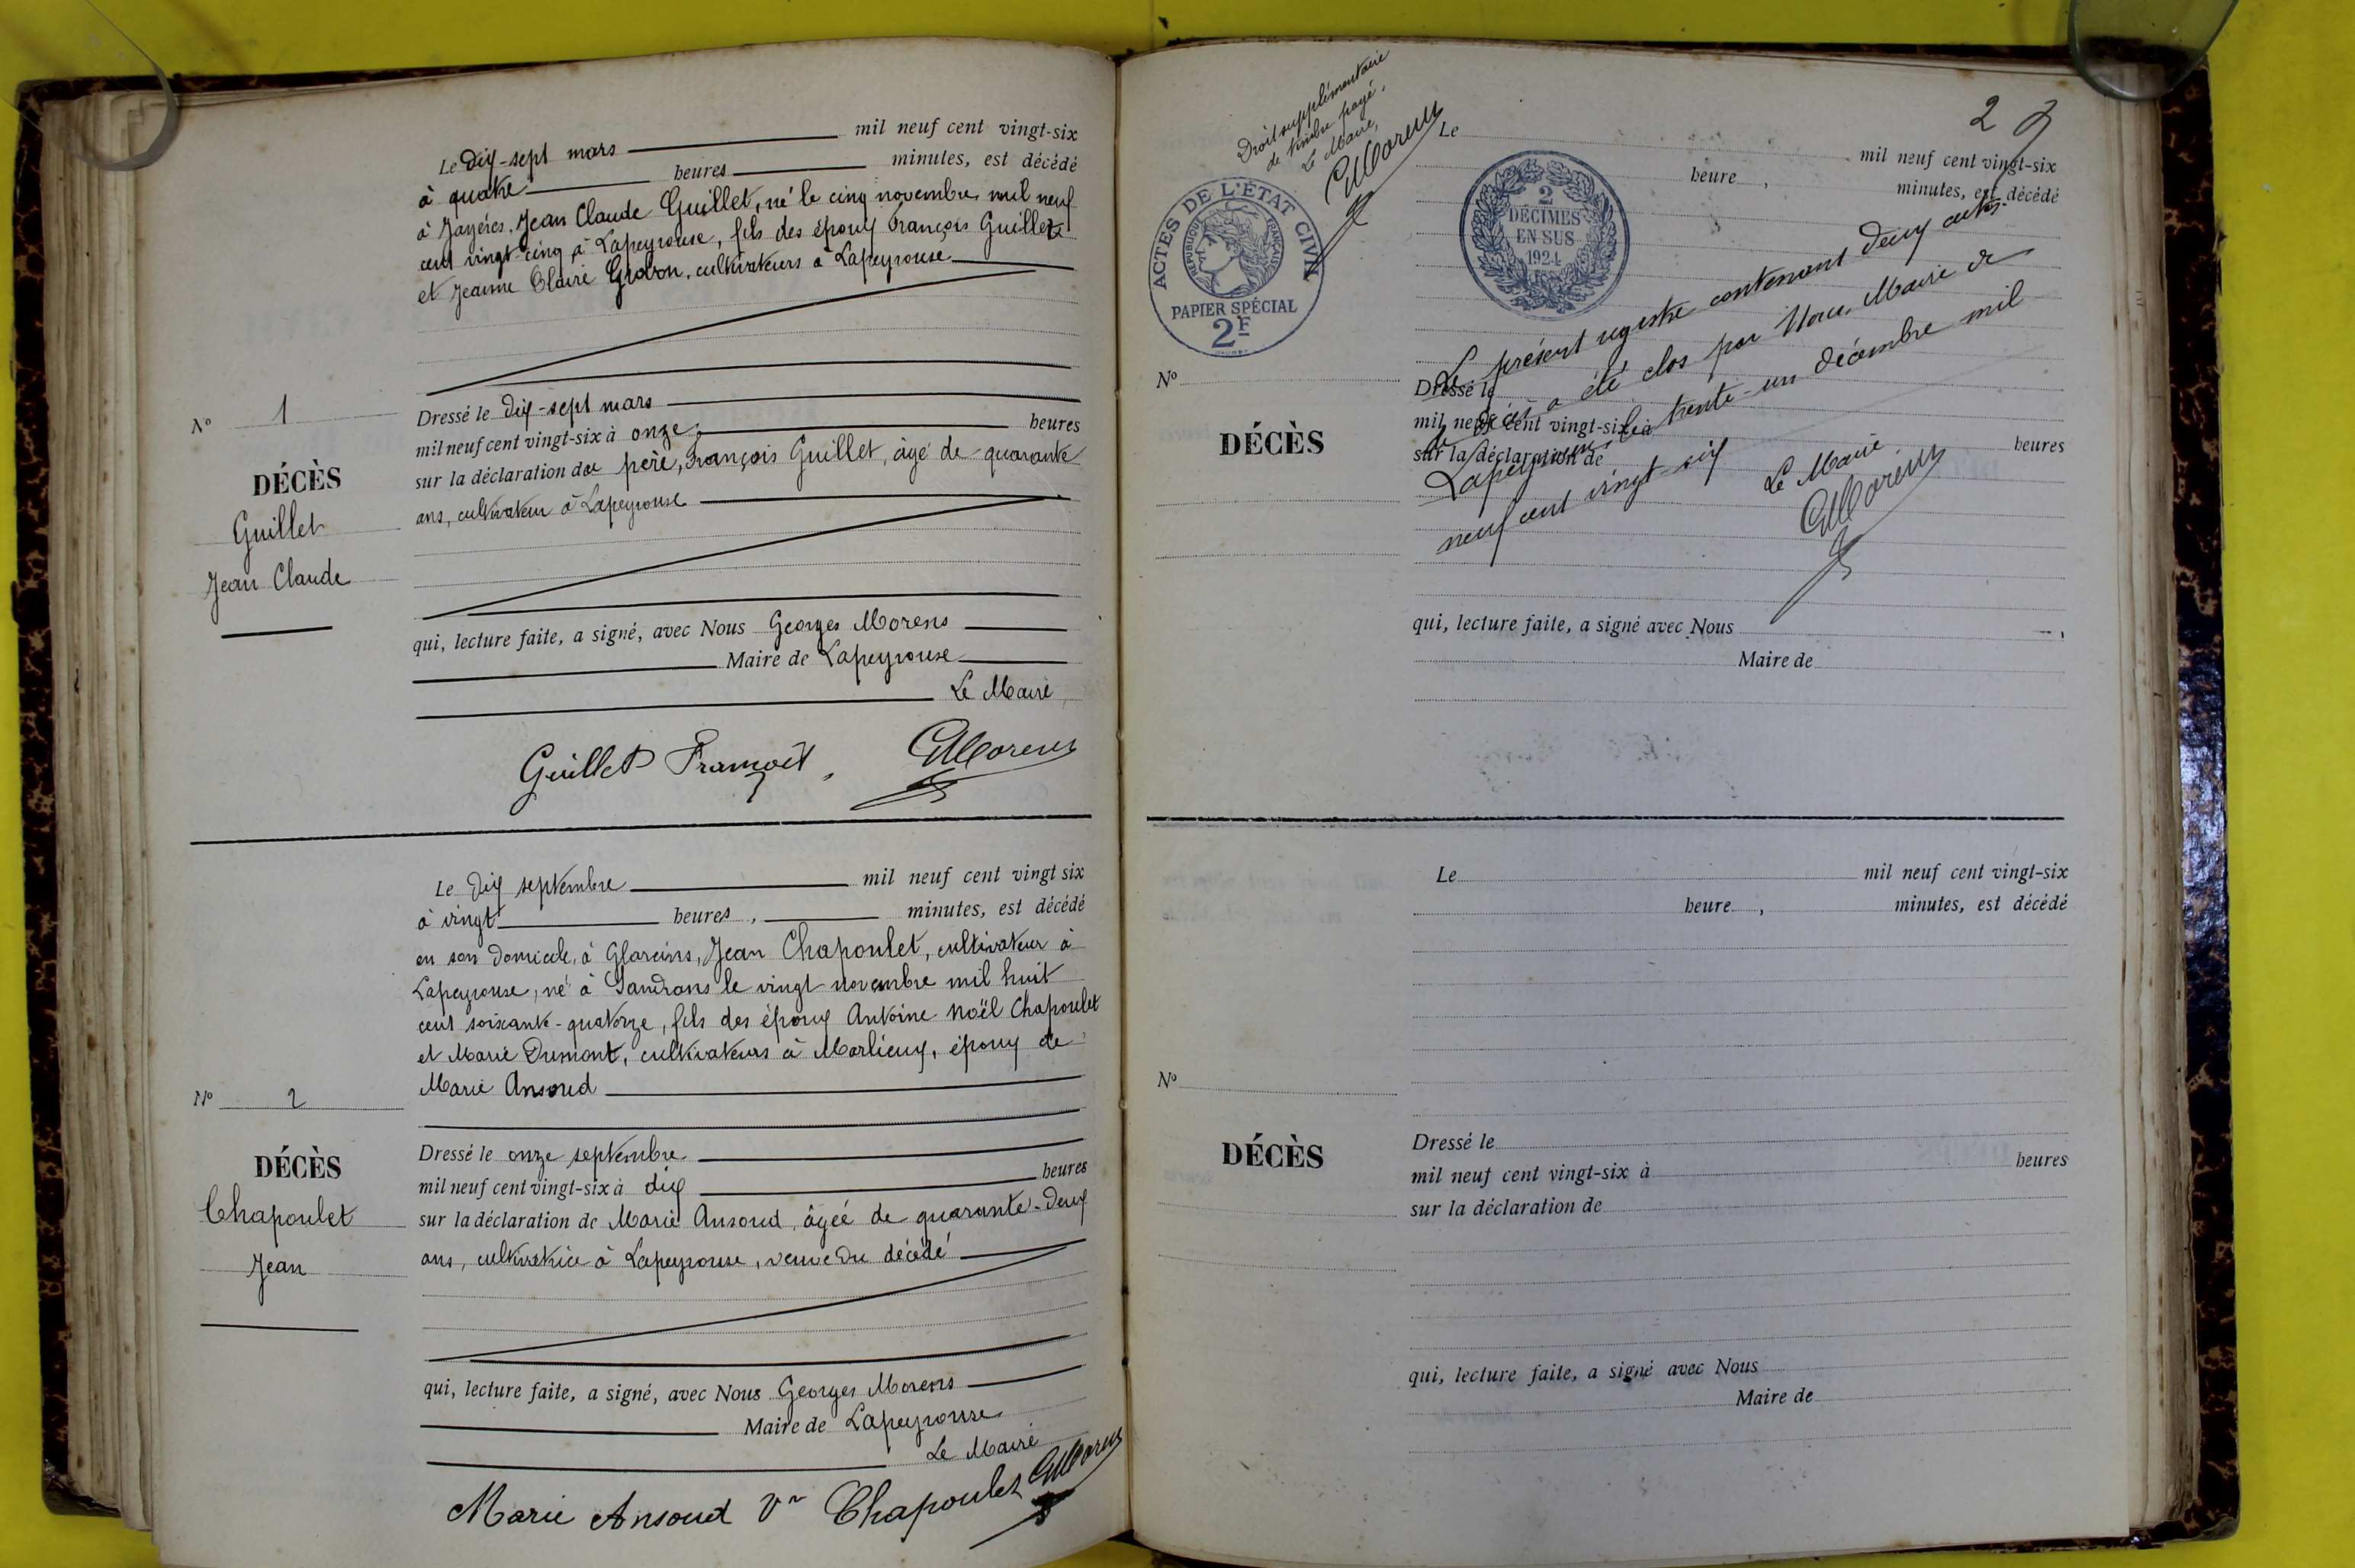 Le dix-sept mars mil neuf cent vingt-six
à quatre heures minutes, est décédé
à Jayères, Jean Claude Guillet, né le cinq novembre mil neuf
cent vingt-cinq à Lapeyrouse, fils des époux François Guillet
et Jeanne Claire, cultivateurs à Lapeyrouse
N° 1
DÉCÈS
Guillet
Jean Claude
Dressé le dix-sept mars
mil neuf cent vingt-six à onze heures
sur la déclaration du père, François Guillet, âgé de quarante
ans, cultivateur à Lapeyrouse
qui, lecture faite, a signé, avec Nous Georges Morens
Maire de Lapeyrouse
Le Maire
Guillet François GMorens
Le dix septembre mil neuf cent vingt six
à vingt heures, minutes, est décédé
en son domicile, à Glareins, Jean Chapoulet, cultivateur à
Lapeyrouse, né à Sandrans le vingt novembre mil huit
cent soixante-quatorze, fils des époux Antoine Noël Chapoulet
et Marie Dumont, cultivateurs à Marlieux, époux de
Marie Ansoud
N° 2
DÉCÈS
Chapoulet
Jean
Dressé le onze septembre
mil neuf cent vingt-six à dix heures
sur la déclaration de Marie Ansoud, âgée de quarante-deux
ans, cultivatrice à Lapeyrouse, veuve du décédé
qui, lecture faite, a signé, avec Nous Georges Morens
Maire de Lapeyrouse
Le Maire
Marie Ansoud Vve Chapoulet GMorens
Droit supplémentaire
de timbre payé.
Le Maire,
GMorens
2
ACTES DE L'ÉTAT CIVIL
RÉPUBLIQUE FRANÇAISE
PAPIER SPÉCIAL
2F
2
DÉCIMES
EN SUS
1924
Le mil neuf cent vingt-six
heure, minutes, est décédé
Le présent registre contenant deux actes
de décès a été clos par Nous, Maire de
Lapeyrouse, le trente-un décembre mil
neuf cent vingt-six
Le Maire
GMorens
N°
DÉCÈS
Dressé le
mil neuf cent vingt-six à heures
sur la déclaration de
qui, lecture faite, a signé avec Nous
Maire de
Le mil neuf cent vingt-six
heure, minutes, est décédé
N°
DÉCÈS
Dressé le
mil neuf cent vingt-six à heures
sur la déclaration de
qui, lecture faite, a signé avec Nous
Maire de